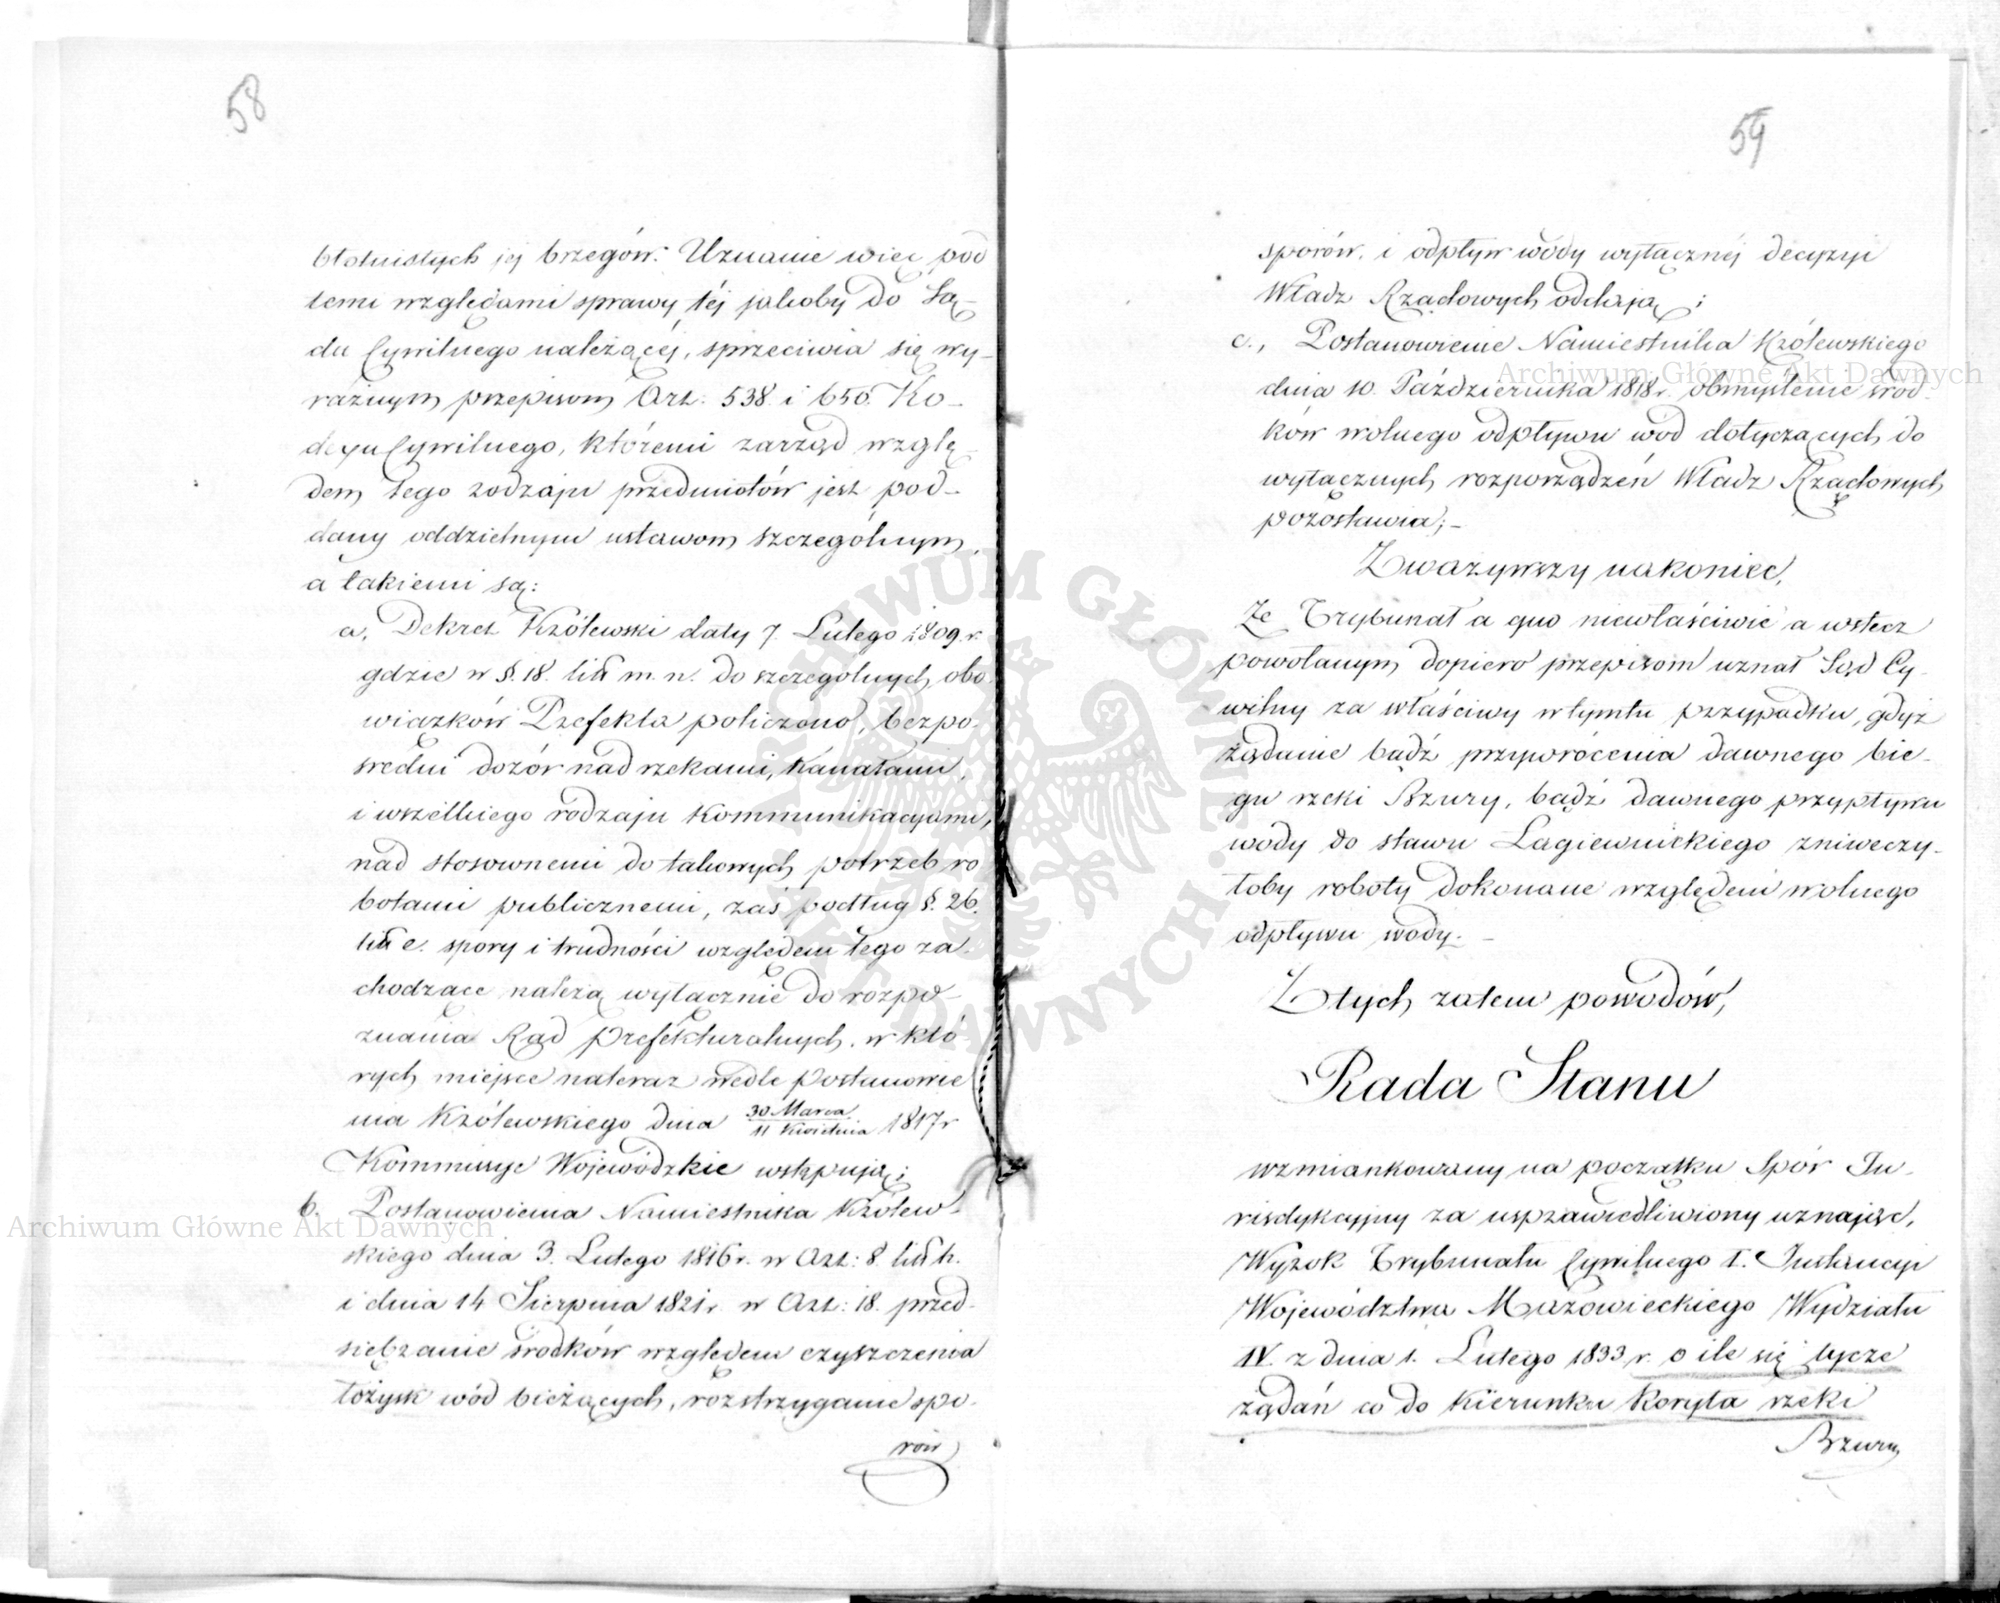 58
błotnistych jej brzegów. Uznanie więc pod
temi względami sprawy téj jakoby do Są-
du Cywilnego należącéj, sprzeciwia się wy-
raźnym przepisom Art: 538. i 650. Ko-
dexu Cywilnego, któremi zarząd wzglę-
dem tego rodzaju przedmiotów jest pod-
dany oddzielnym ustawom szczególnym,
a takiemi są:
a, Dekret Królewski daty 7. Lutego 1809. r.
gdzie w §. 18. litt m. n. do szczególnych obo-
wiązków Prefekta policzono, bezpo-
średni dozór nad rzekami, Kanałami,
i wszelkiego rodzaju Kommunikacyami,
nad stosownemi do takowych potrzeb ro
botami publicznemi, zaś podług §. 26.
litt e. spory i trudności względem tego za-
chodzące należą wyłącznie do rozpo-
znania Rad Prefekturalnych, w któ-
rych miejsce nateraz wedle postanowie
nia Królewskiego dnia 30 Marca / 11 Kwietnia 1817 r
Kommissye Wojewódzkie wstępują;
b. Postanowienia Namiestnika Królew-
skiego dnia 3. Lutego 1816 r. w Art: 8. litt h.
i dnia 14 Sierpnia 1821 r. w Art: 18. przed-
siębranie środków względem czyszczenia
łożysk wód bieżących, rozstrzyganie spo-
rów
59
sporów, i odpływ wody wyłącznéj decyzyi
Władz Rządowych oddają;
c., Postanowienie Namiestnika Królewskiego
dnia 10. Października 1818 r. obmyślenie środ-
ków wolnego odpływu wód dotyczących do
wyłącznych rozporządzeń Władz Rządowych
pozostawia;-
Zważywszy nakoniec,
Że Trybunał a quo niewłaściwie a wstecz
powołanym dopiero przepisom uznał Sąd Cy-
wilny za właściwy w tymtu przypadku, gdyż
żądanie bądź przywrócenia dawnego bie-
gu rzeki Bzury, bądź dawnego przypływu
wody do stawu Łagiewnickiego zniweczy-
łoby roboty dokonane względem wolnego
odpływu wody. -
Z tych zatem powodów,
Rada Stanu
wzmiankowany na początku Spór Ju-
risdykcyjny za usprawiedliwiony uznając,
Wyrok Trybunału Cywilnego I. Instancyi
Województwa Mazowieckiego Wydziału
IV. z dnia 1. Lutego 1833 r. o ile się tycze
żądań co do Kierunku Koryta rzeki
Bzury
Archiwum Główne Akt Dawnych
Archiwum Główne Akt Dawnych
ARCHIWUM GŁÓWNE AKT DAWNYCH